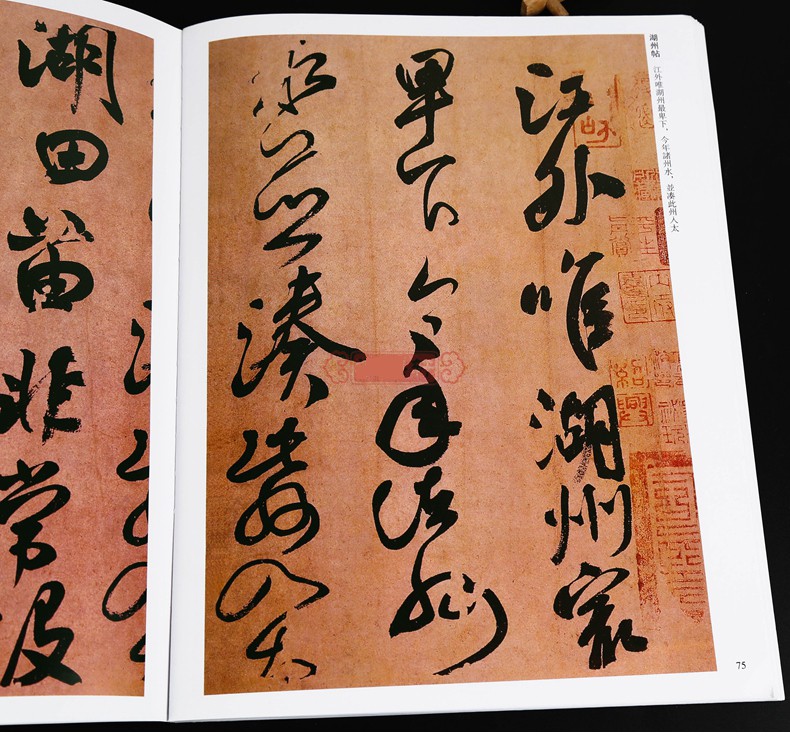 湖州帖　江外唯湖州最卑下，今年諸州水，並湊此州入太
江外唯湖州最
卑下今年諸州
水並湊此州入太
湖田苗非常没
紹興
75